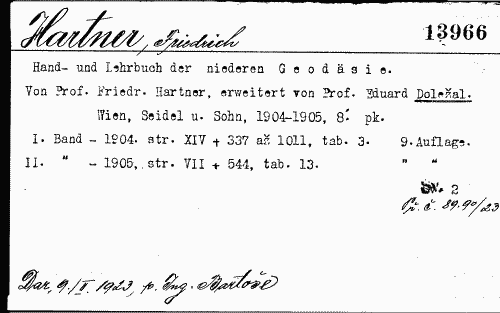 Hartner, Friedrich
13966
Hand- und Lehrbuch der niederen G e o d ä s i e.
Von Prof. Friedr. Hartner, erweitert von Prof. Eduard Doležal.
Wien, Seidel u. Sohn, 1904-1905, 8° pk.
I. Band - 1904. str. XIV + 337 až 1011, tab. 3. 9.Auflage.
II. " - 1905, str. VII + 544, tab. 13. " "
Sv. 2
Př. č. 89.90/23
Dar, 9./V. 1923, p. Ing. Bartoše